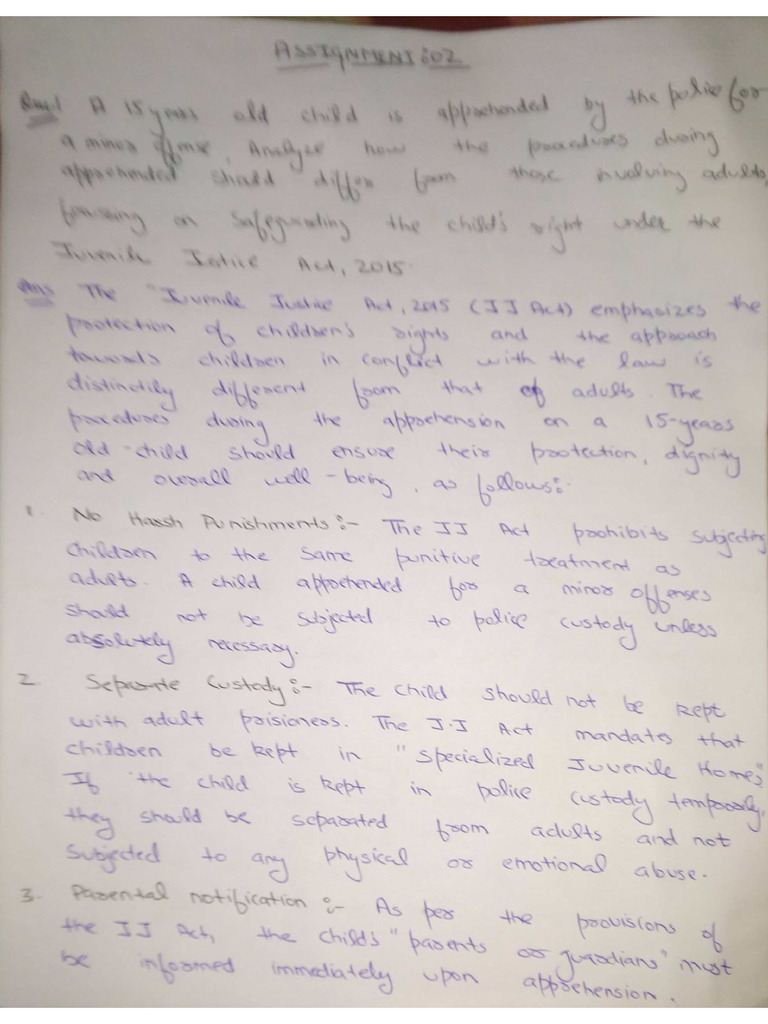 ASSIGNMENT:02
Ques1 A 15 years old child is apprehended by the police for
a minor offense. Analyze how the procedures during
apprehended should differ from those involving adults,
focusing on safeguarding the child's right under the
Juvenile Justice Act, 2015.
Ans The "Juvenile Justice Act, 2015 (JJ Act) emphasizes the
protection of children's rights and the approach
towards children in conflict with the law is
distinctily different from that of adults. The
procedures during the apprehension on a 15-years
old-child should ensure their protection, dignity
and overall well-being, as follows:-
1. No Harsh Punishments:- The JJ Act prohibits subjecting
children to the same punitive treatment as
adults. A child apprehended for a minor offenses
should not be subjected to police custody unless
absolutely necessary.
2. Separate Custody:- The child should not be kept
with adult prisioners. The J.J Act mandates that
children be kept in "specialized Juvenile Homes"
If the child is kept in police custody temporarly,
they should be separated from adults and not
subjected to any physical or emotional abuse.
3. Parental notification:- As per the provisions of
the JJ Act, the child's "parents or guardians" must
be informed immediately upon apprehension.